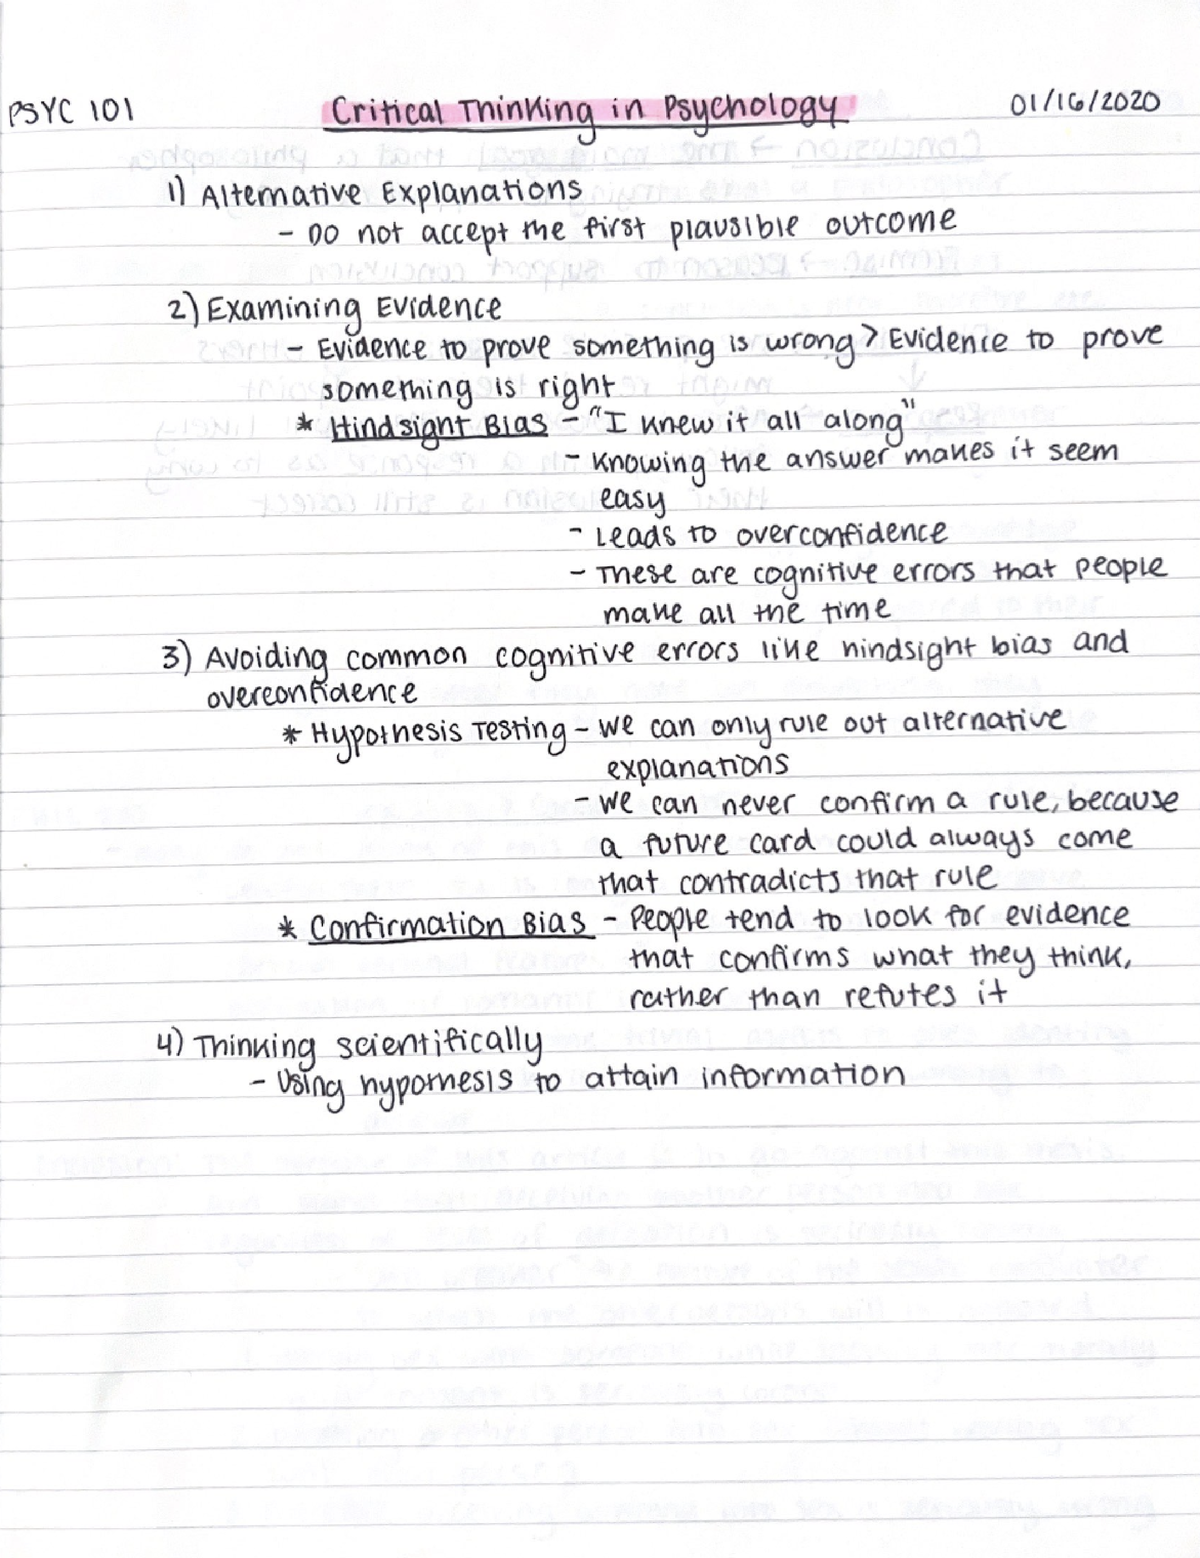 PSYC 101 Critical Thinking in Psychology 01/16/2020
1) Alternative Explanations
- Do not accept the first plausible outcome
2) Examining Evidence
- Evidence to prove something is wrong > Evidence to prove
something is right
* Hindsight Bias - "I knew it all along"
- Knowing the answer makes it seem
easy
- Leads to overconfidence
- These are cognitive errors that people
make all the time
3) Avoiding common cognitive errors like hindsight bias and
overconfidence
* Hypothesis Testing - we can only rule out alternative
explanations
- we can never confirm a rule, because
a future card could always come
that contradicts that rule
* Confirmation Bias - People tend to look for evidence
that confirms what they think,
rather than refutes it
4) Thinking scientifically
- Using hypothesis to attain information